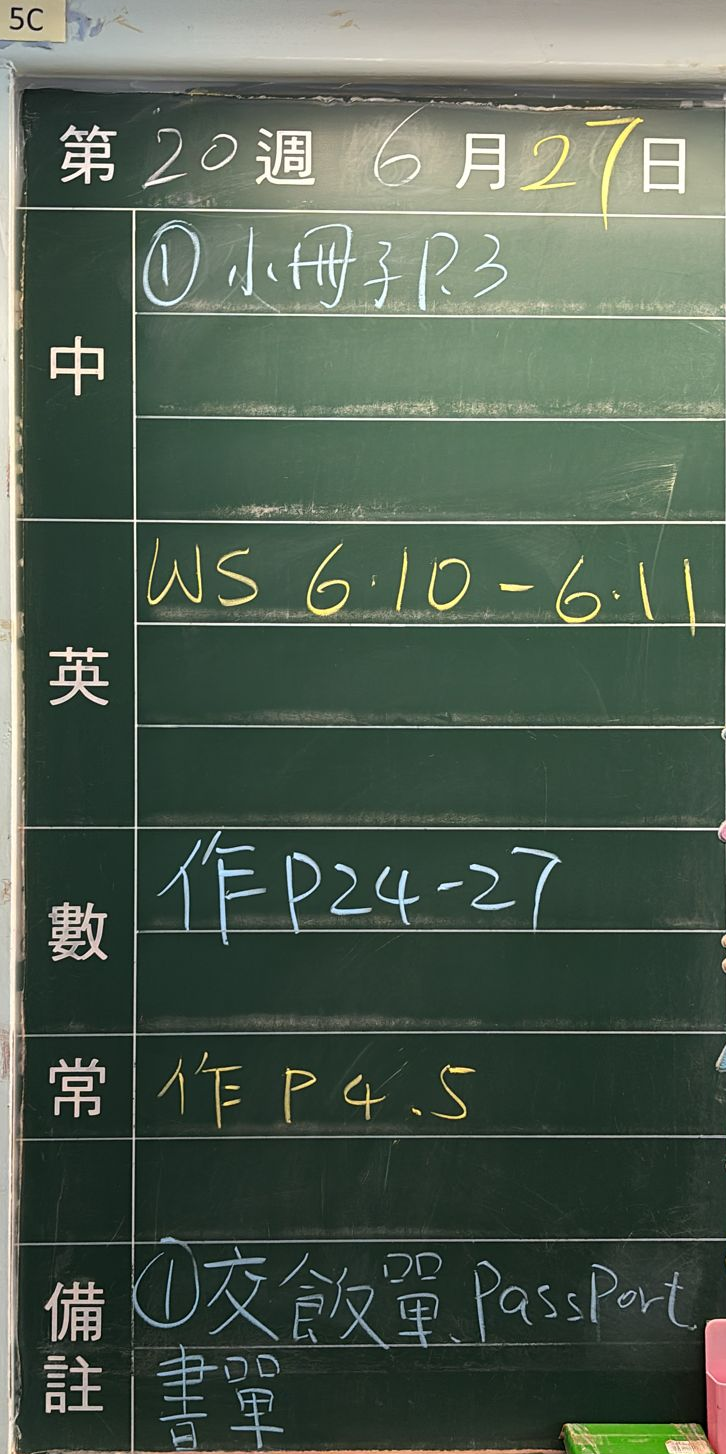 5C
第 20 週 6 月 27 日
中
① 小冊子 P.3
英
WS 6.10 - 6.11
數
作 P24-27
常
作 P 4、5
備註
① 交飯單、PassPort、
書單